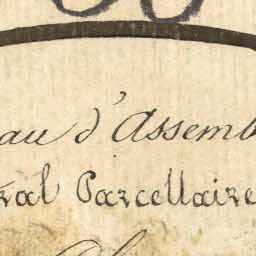 au d'Assemb
ral Parcellaire